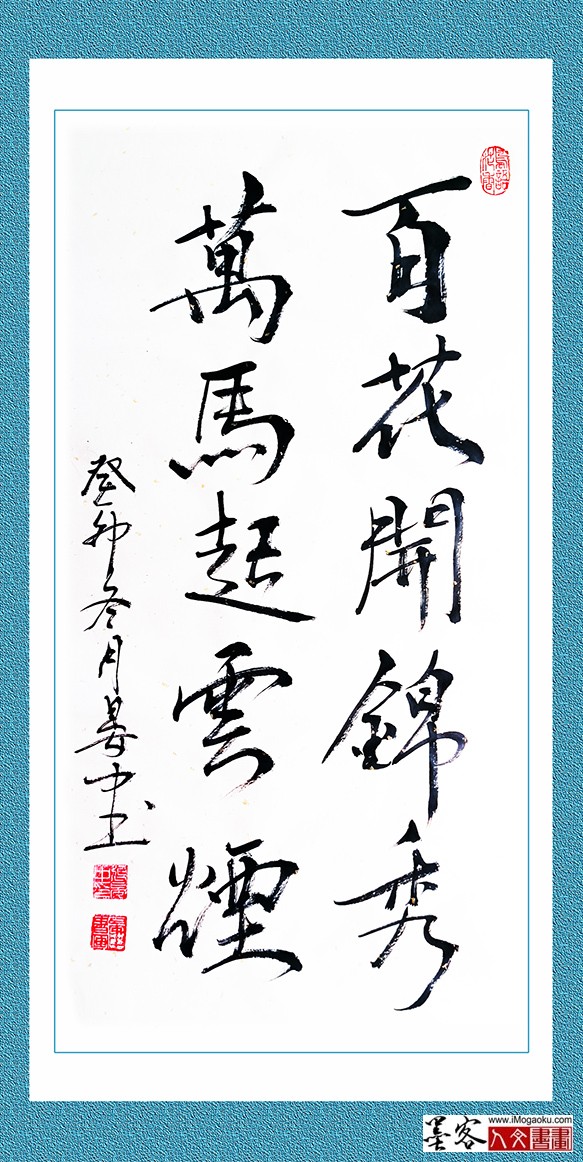 百花開錦秀
萬馬起雲煙
癸卯冬月晏中书
www.iMogaoku.com
墨客
人文書畫